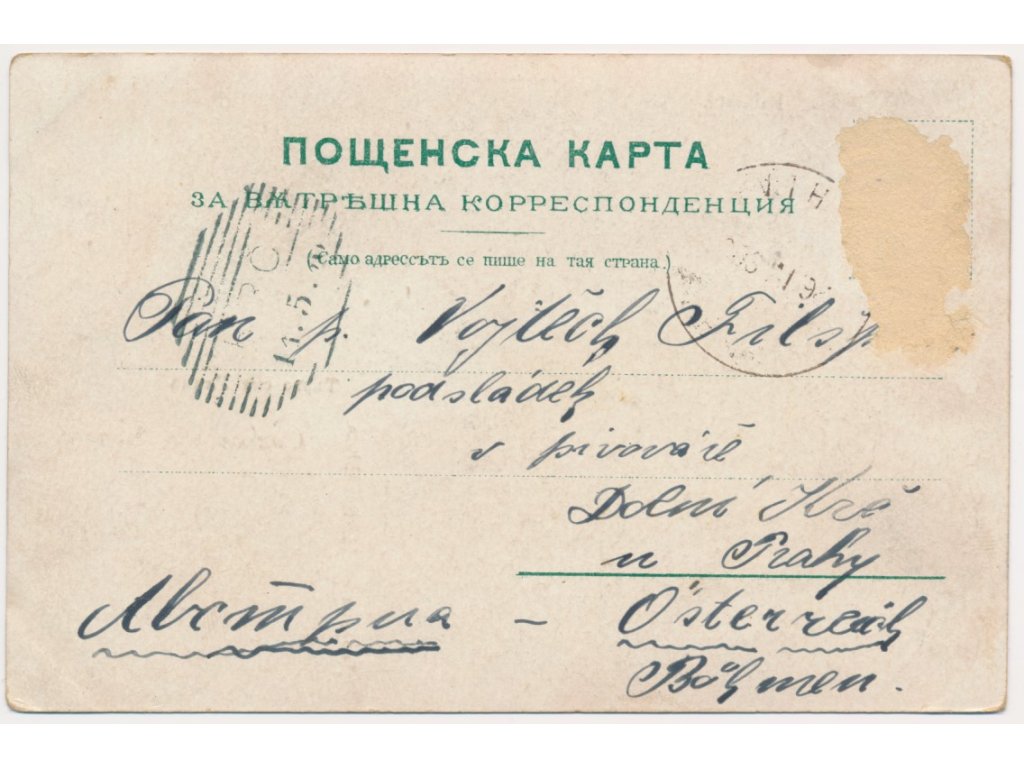 ПОЩЕНСКА КАРТА
ЗА ВѪТРѢШНА КОРРЕСПОНДЕНЦИЯ
(Само адрессътъ се пише на тая страна.)
Pan p. Vojtěch
podsládek
v pivováře
Dolní Krč
u Prahy
Австрия – Österreich
Böhmen.